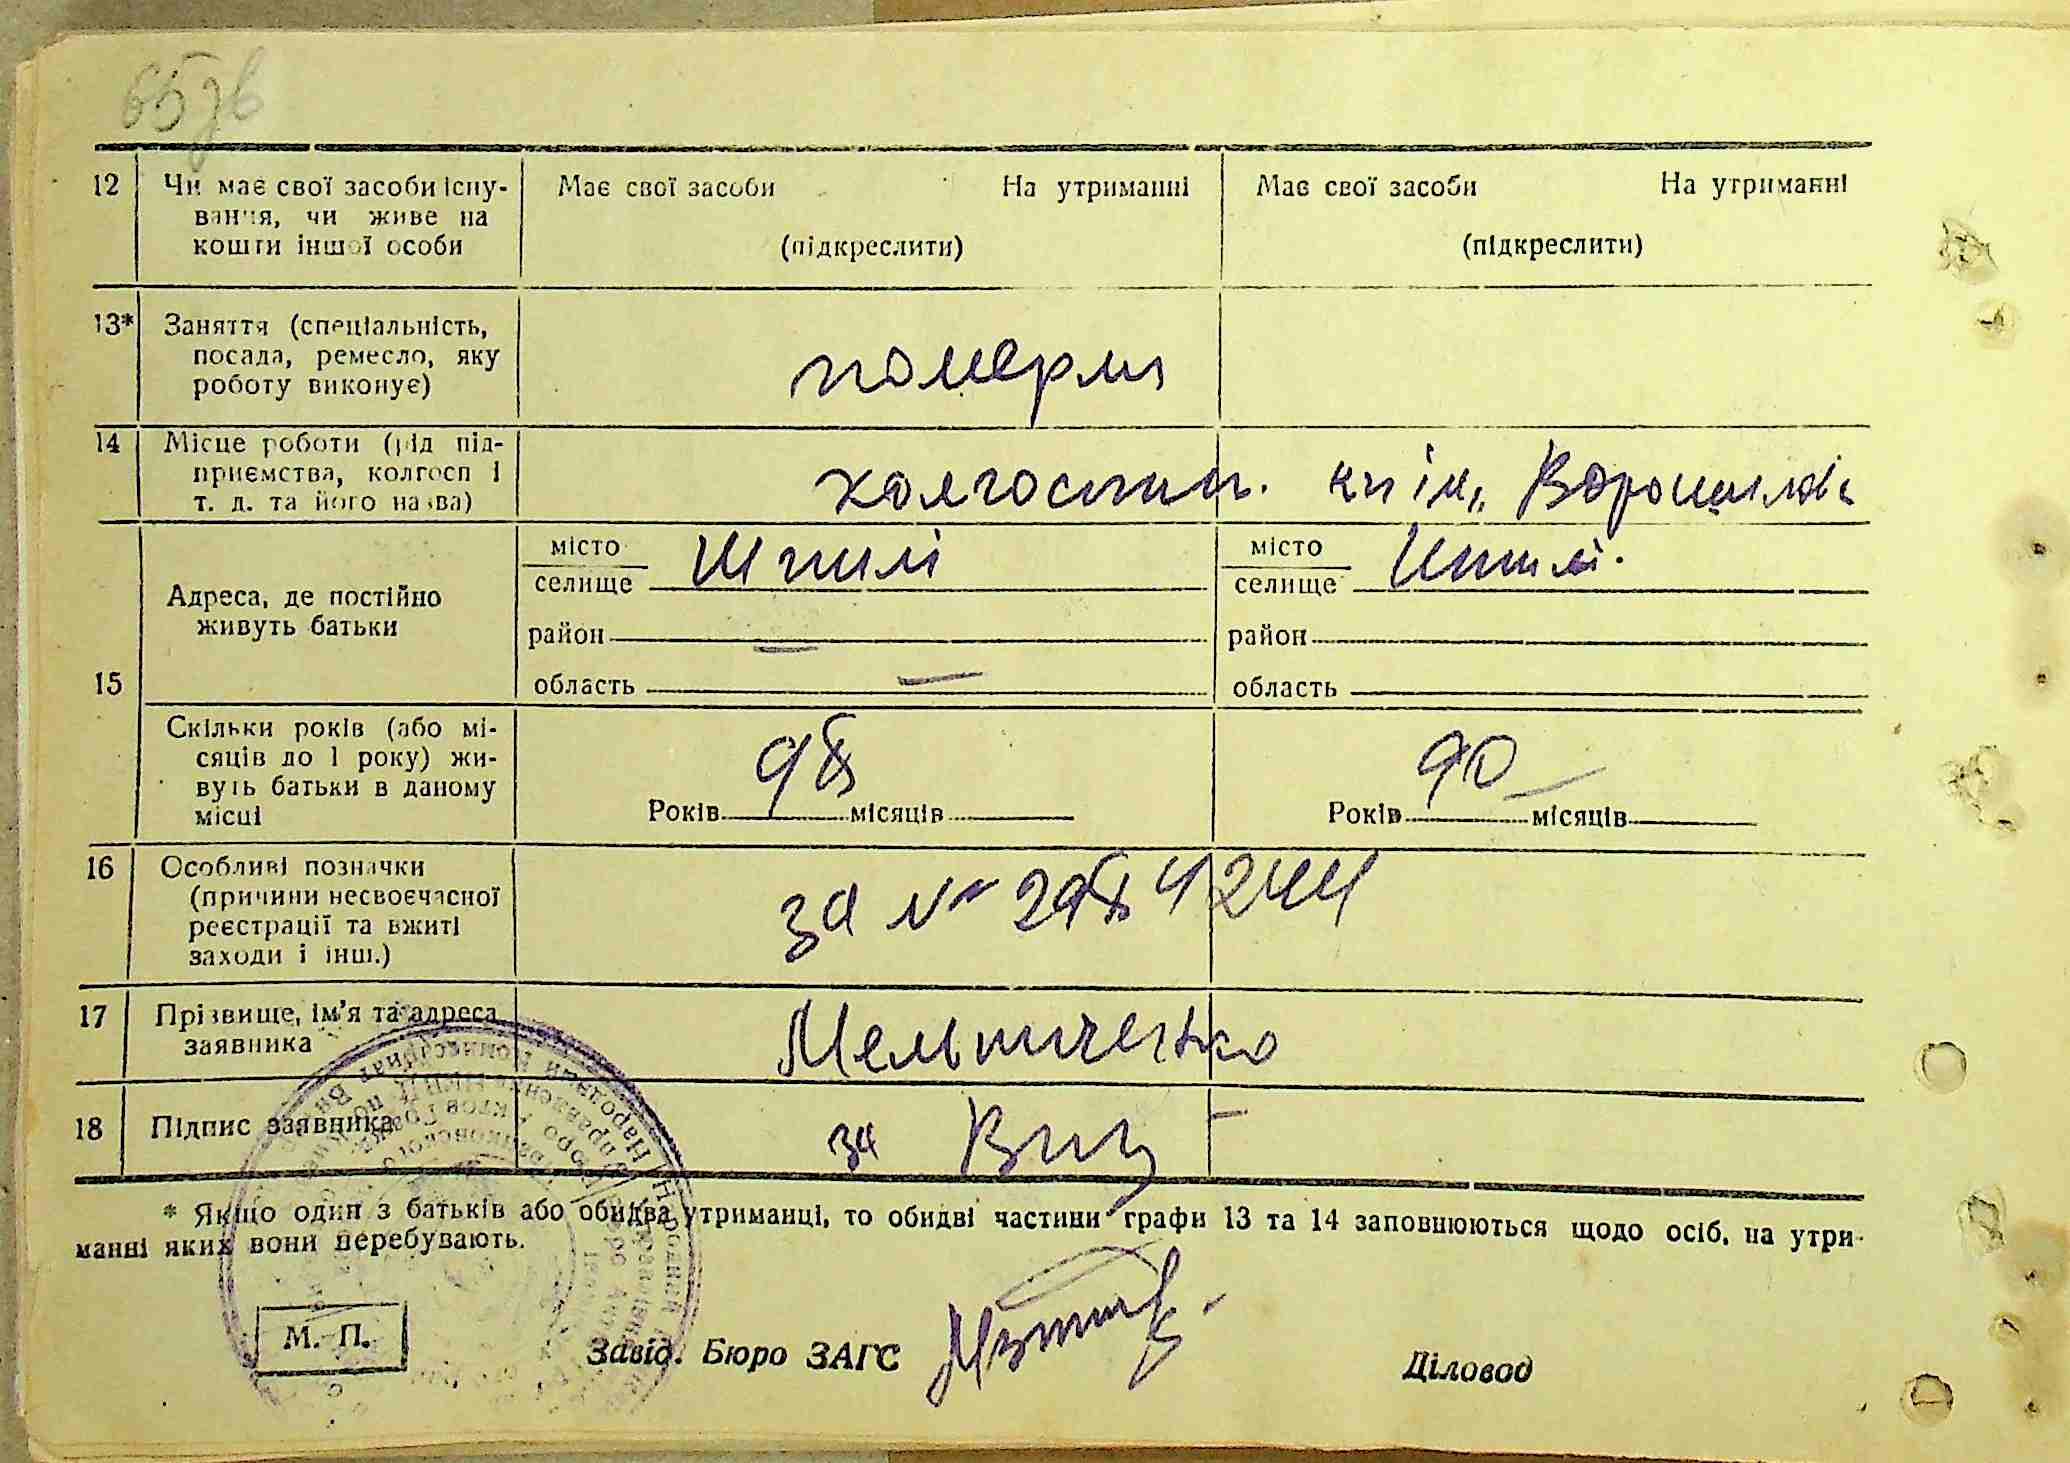 65зв
12 Чи має свої засоби існу- Має свої засоби На утриманні Має свої засоби На утриманні
вання, чи живе на
кошти іншої особи (підкреслити) (підкреслити)
13* Заняття (спеціальність,
посада, ремесло, яку померли
роботу виконує)
14 Місце роботи (рід під-
приємства, колгосп і колгоспн. ім.
т. д. та його назва)
місто місто
селище Шпилі селище Шпилі
Адреса, де постійно
живуть батьки район — район
15 область — область
Скільки років (або мі-
сяців до 1 року) жи-
вуть батьки в даному 90
місці Років місяців Років місяців
16 Особливі позначки
(причини несвоєчасної за №
реєстрації та вжиті
заходи і інш.)
17 Прізвище, ім'я та адреса
заявника Мельниченко
18 Підпис заявника за
* Якщо один з батьків або обидва утриманці, то обидві частини графи 13 та 14 заповнюються щодо осіб, на утри-
манні яких вони перебувають.
М. П.
Завід. Бюро ЗАГС Діловод